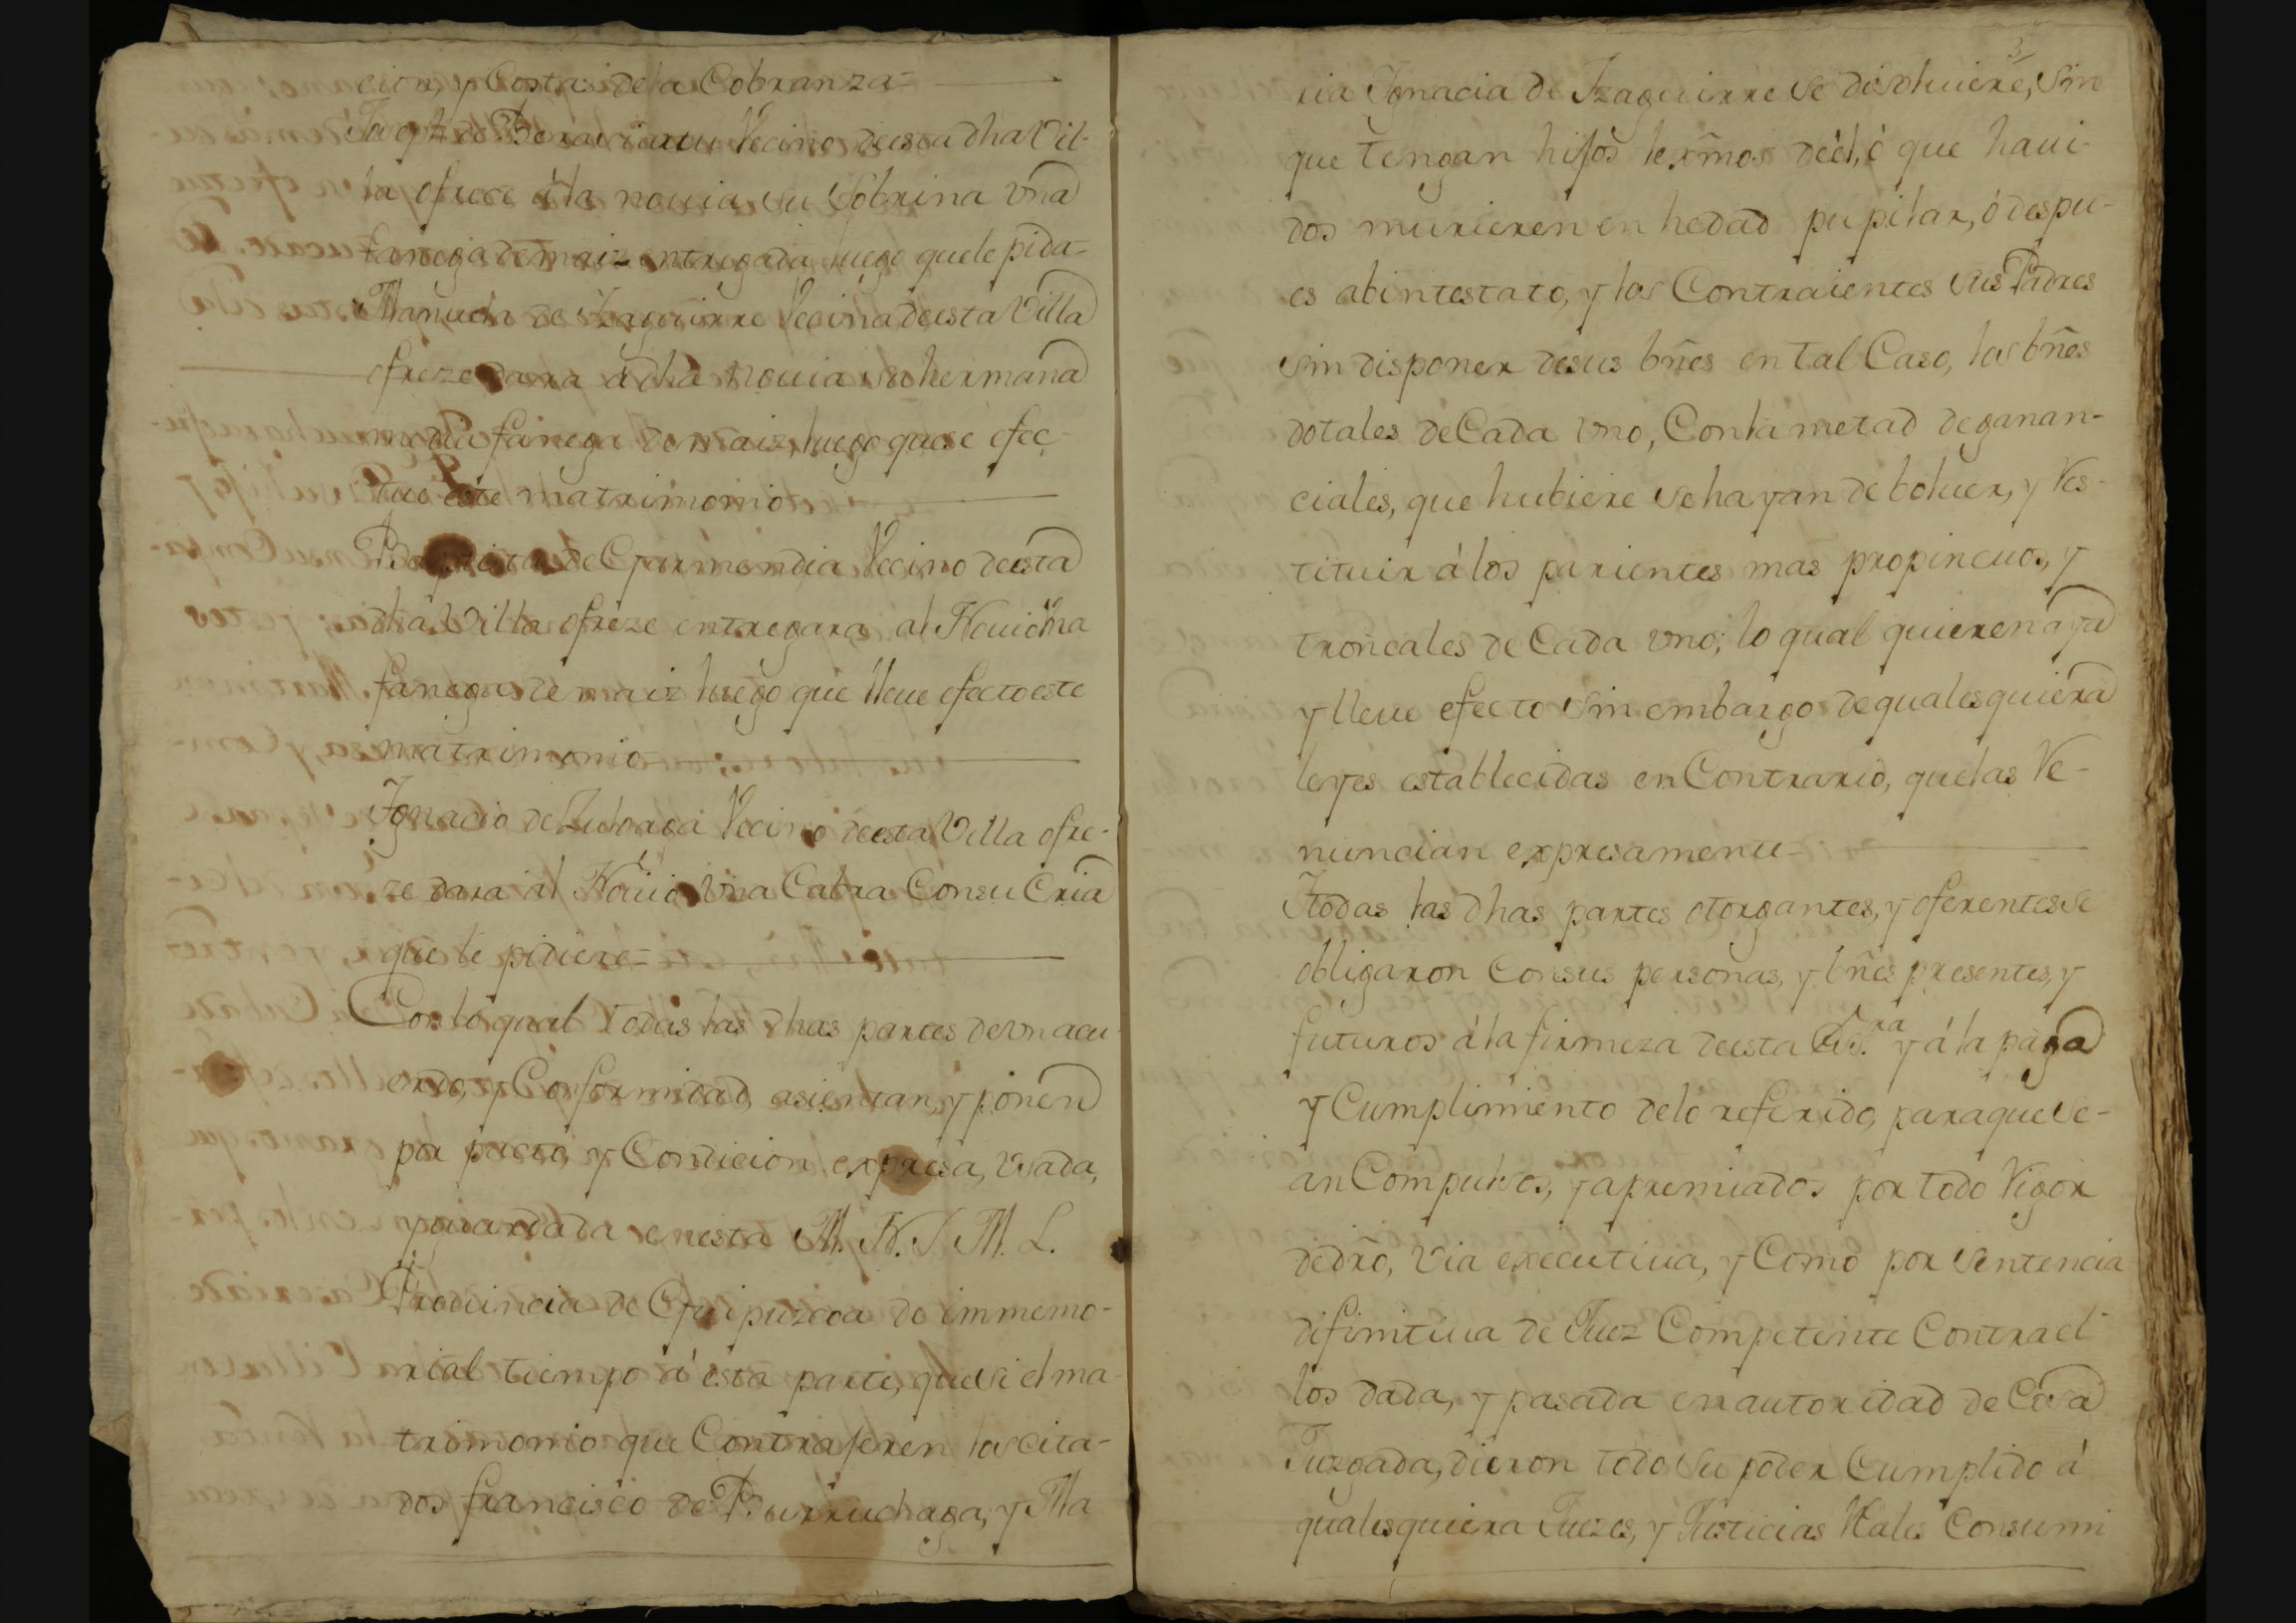 cion, y Costas dela Cobranza=
Joseph de Vecino deesta dha Vil-
la ofrece á la nouia su Sobrina vna
fanega de maiz entregada luego quele pida=
Manuela de Yzaguirre Vecina deesta Villa
ofreze dara á dha nouia su hermana
media fanega de maiz, luego que se efec-
tue este matrimonio
Baptista de Garmendia Vecino deesta
dha Villa ofreze entregara al Nouio vna
fanega de maiz luego que lleue efecto este
matrimonio
Ignacio de Zuloaga Vecino deesta Villa ofre-
ze dara al Nouio vna Cabra Consu Cria
que le pidiere=
Con lo qual todas las dhas partes de vn acu-
erdo, y Conformidad asientan, y ponen
por pacto, y Condicion expresa, vsada,
y guardada enesta M. N. y M. L.
Prouincia de Guipuzcoa de immemo-
rial tiempo á esta parte, que si el ma-
trimonio que Contrajeren los cita-
dos francisco de Burruchaga, y Ma
3
ria Ignacia de Yzaguirre se disoluiere, sin
que tengan hijos lexmos déel, ó que haui-
dos murieren en hedad pupilar, ó despu-
es abintestato, y los Contraientes sus Padres
sin disponer desus bñes en tal Caso, los bñes
dotales de Cada vno, Conla metad de ganan-
ciales, que hubiere se hayan de boluer, y Res-
tituir á los parientes mas propincuos, y
troncales de Cada vno; lo qual quieren aya
y lleue efecto sin embargo de qualesquiera
leyes establecidas en Contrario, quelas Re-
nuncian expresamente
Ytodas las dhas partes otorgantes, y oferentes se
obligaron Consus personas, y bñes presentes, y
futuros á la firmeza deesta y á la paga
y Cumplimiento delo referido, paraque se-
an Compulsos, y apremiados por todo Rigor
dedrô, Via executiua, y Como por Sentencia
difinitiua de Juez Competente Contra el-
los dada, y pasada en autoridad de Cosa
Juzgada, dieron todo su poder Cumplido á
qualesquiera Juezes, y Justicias Rales Consumi